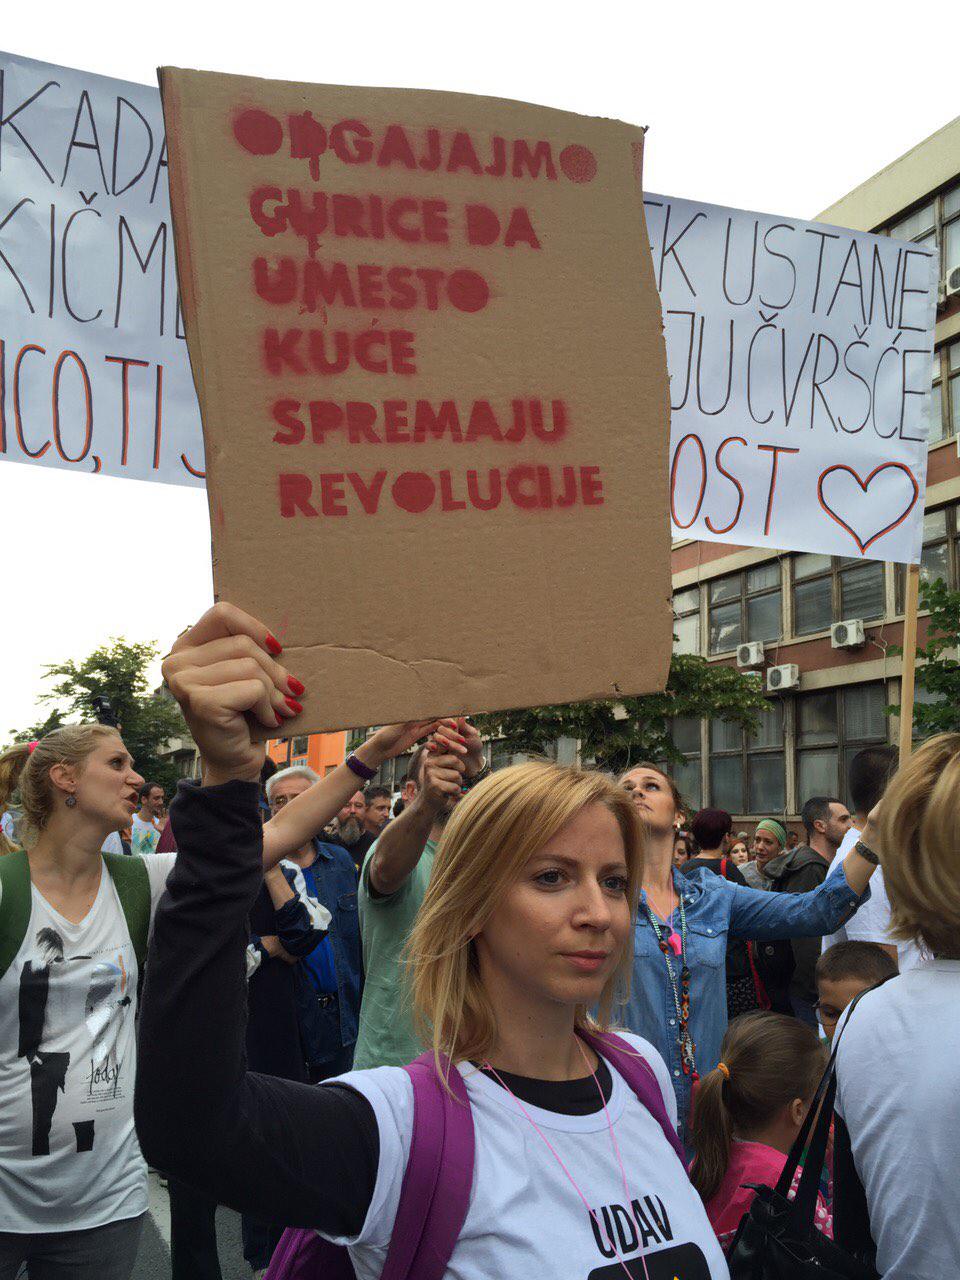 ODGAJAJMO
GURICE DA
UMESTO
KUĆE
SPREMAJU
REVOLUCIJE
KADA
KIČM
ICO, TI
EK USTANE
JU ČVRŠĆE
OST
today
UDAV